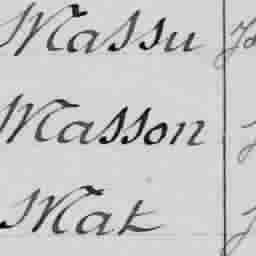 Massu
Masson
Mat